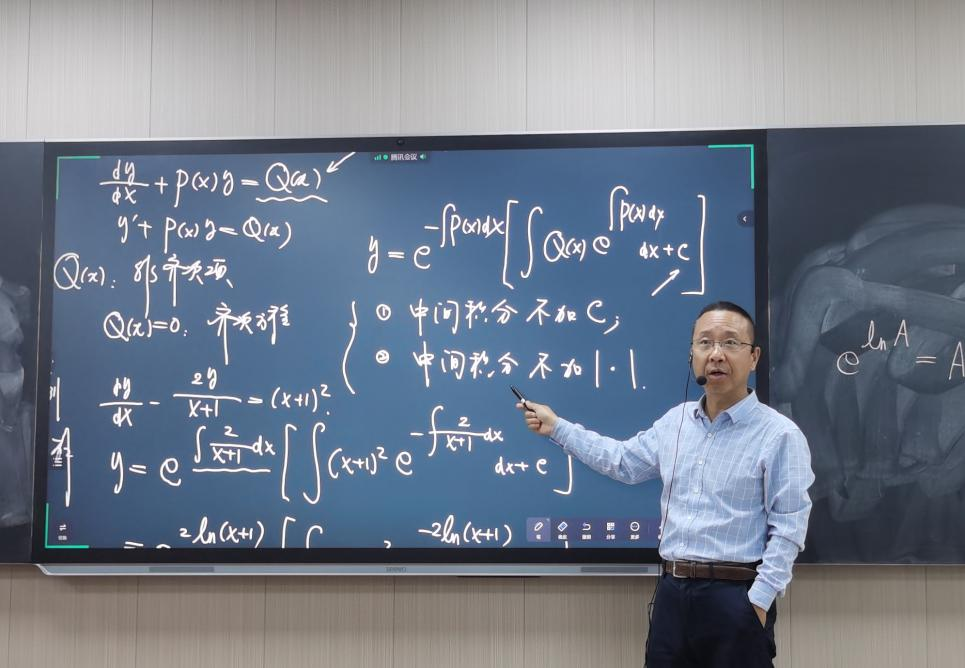 腾讯会议
dy/dx + P(x)y = Q(x)
y' + P(x)y = Q(x)
Q(x): 非齐次项
Q(x)=0: 齐次方程
y = e^{-∫P(x)dx} [∫Q(x) e^{∫P(x)dx} dx + C]
① 中间积分不加C;
② 中间积分不加|·|.
例
dy/dx - 2y/(x+1) = (x+1)^2.
y = e^{∫ 2/(x+1) dx} [∫(x+1)^2 e^{-∫ 2/(x+1) dx} dx + c]
= e^{2ln(x+1)} [∫ e^{-2ln(x+1)}
e^{ln A} = A